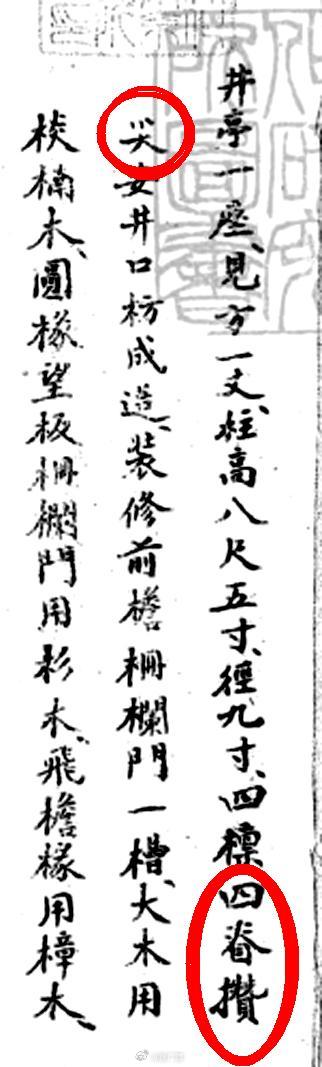 井亭一座、見方一丈、柱高八尺五寸、徑九寸、四檁四脊攢
尖安井口枋成造、装修前檐柵欄門一槽、大木用
楠木、圓椽望板柵欄門用杉木、飛檐椽用樟木、